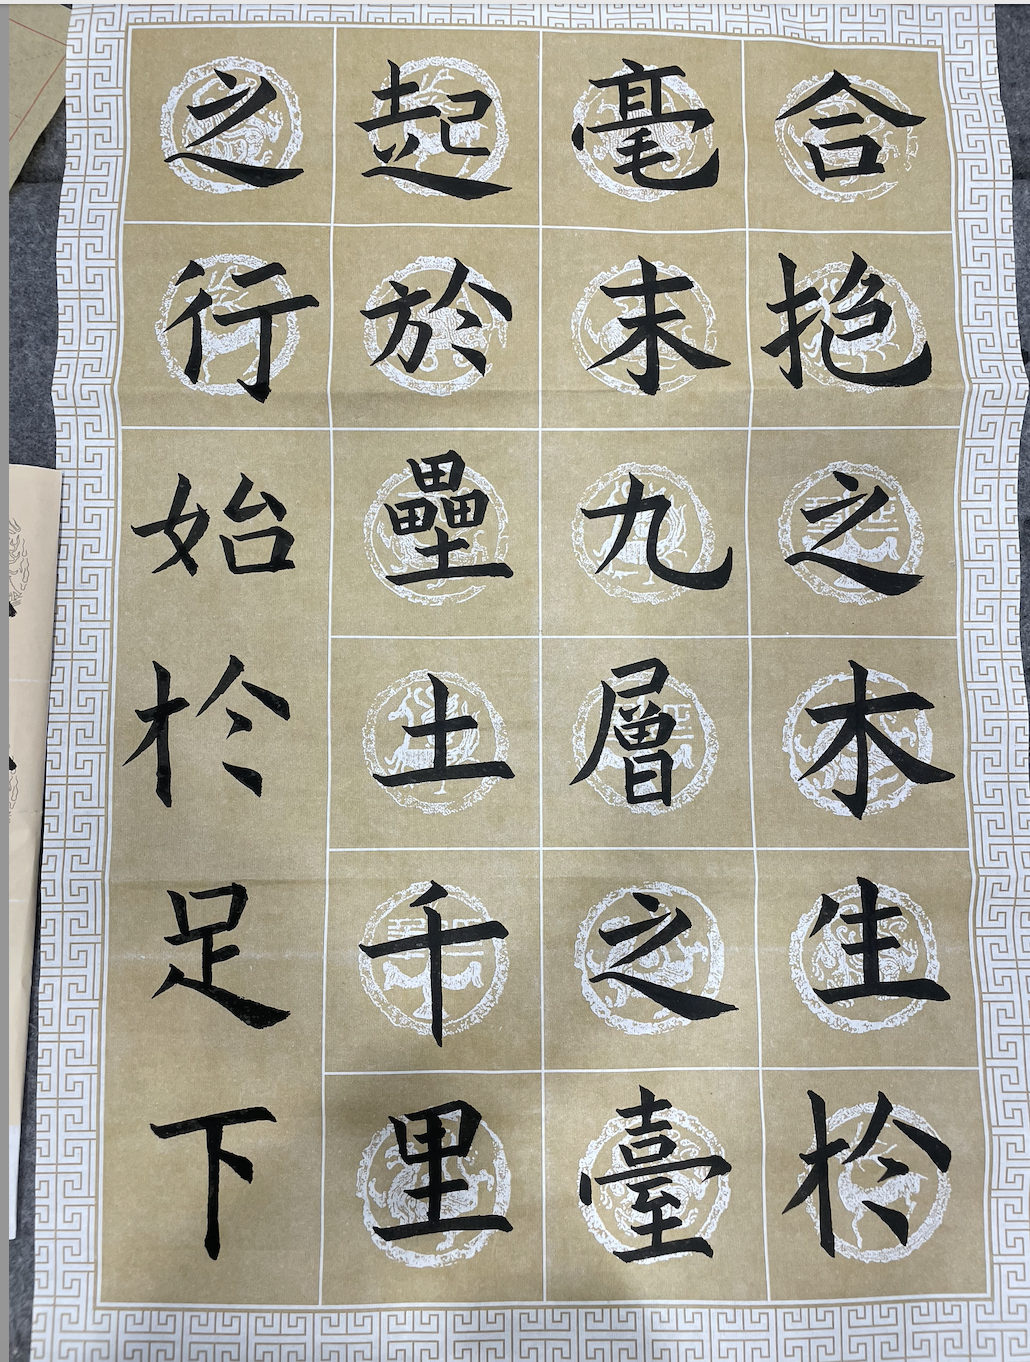 合抱之木生於
毫末九層之臺
起於壘土千里
之行始於足下